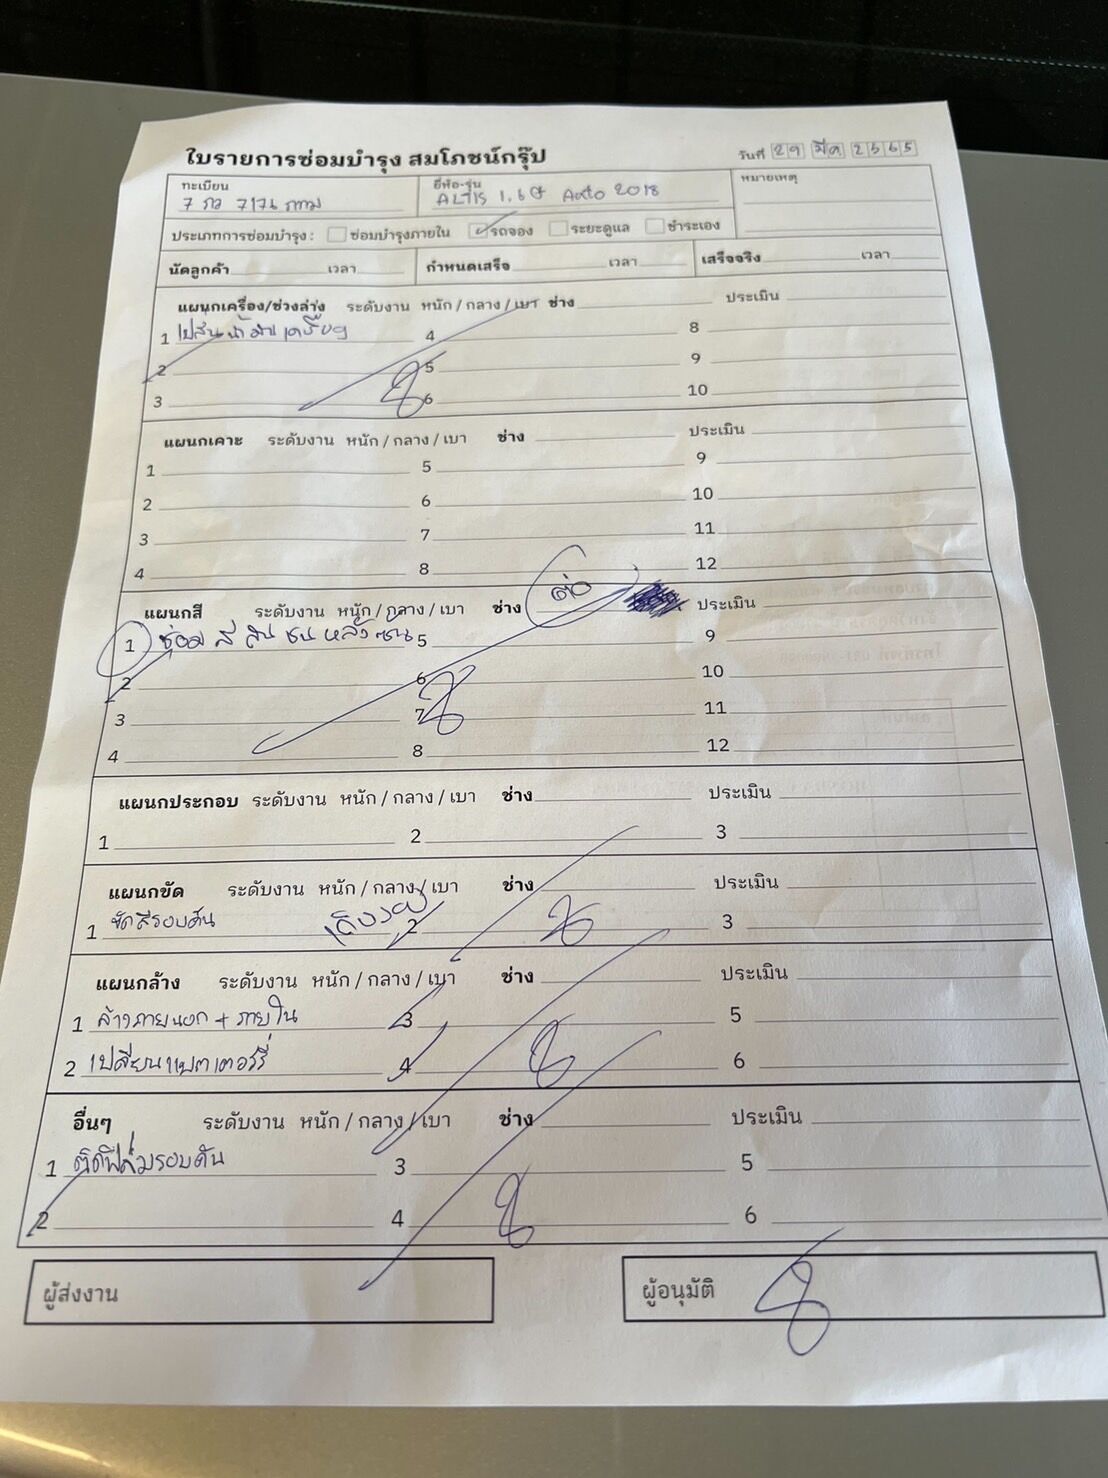 ใบรายการซ่อมบำรุง สมโภชน์กรุ๊ป
วันที่ 29 มีค 2565
ทะเบียน ยี่ห้อ-รุ่น หมายเหตุ
7 กว 7176 กทม ALTIS 1.6 G Auto 2018
ประเภทการซ่อมบำรุง : ซ่อมบำรุงภายใน รถจอง ระยะดูแล ชำระเอง
นัดลูกค้า เวลา กำหนดเสร็จ เวลา เสร็จจริง เวลา
แผนกเครื่อง/ช่วงล่าง ระดับงาน หนัก / กลาง / เบา ช่าง ประเมิน
1 น้ำมันเครื่อง 4 8
2 5 9
3 6 10
แผนกเคาะ ระดับงาน หนัก / กลาง / เบา ช่าง ประเมิน
1 5 9
2 6 10
3 7 11
4 8 12
แผนกสี ระดับงาน หนัก / กลาง / เบา ช่าง ต่อ ประเมิน
1 ซ่อม สี กันชนหลัง 5 9
2 6 10
3 7 11
4 8 12
แผนกประกอบ ระดับงาน หนัก / กลาง / เบา ช่าง ประเมิน
1 2 3
แผนกขัด ระดับงาน หนัก / กลาง / เบา ช่าง ประเมิน
1 ขัดสีรอบคัน 2 3
แผนกล้าง ระดับงาน หนัก / กลาง / เบา ช่าง ประเมิน
1 ล้างภายนอก + ภายใน 3 5
2 เปลี่ยนแบตเตอร์รี่ 4 6
อื่นๆ ระดับงาน หนัก / กลาง / เบา ช่าง ประเมิน
1 ติดฟิล์มรอบคัน 3 5
2 4 6
ผู้ส่งงาน ผู้อนุมัติ